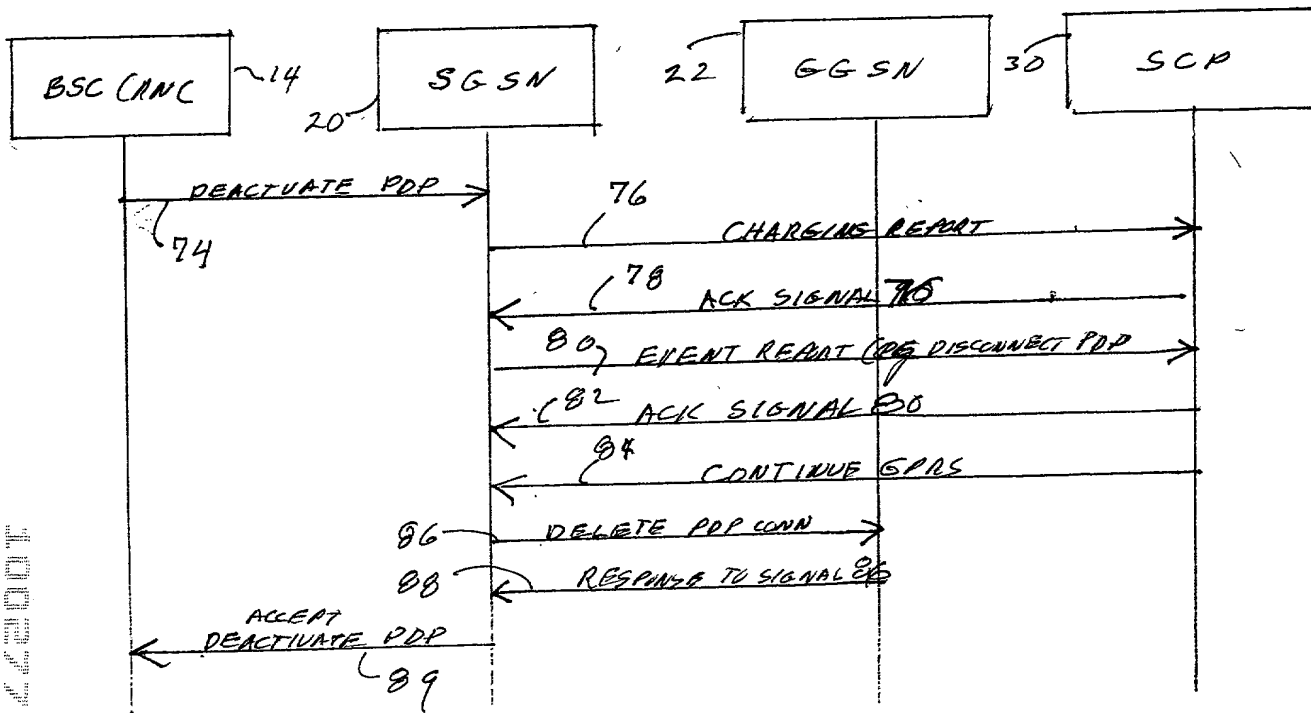 BSC (RNC
14
SGSN
20
22
GGSN
30
SCP
DEACTIVATE PDP
74
76
CHARGING REPORT
78
ACK SIGNAL 76
80
EVENT REPORT ( DISCONNECT PDP
82
ACK SIGNAL 80
84
CONTINUE GPRS
86
DELETE PDP CONN
88
RESPONSE TO SIGNAL 86
ACCEPT
DEACTIVATE PDP
89